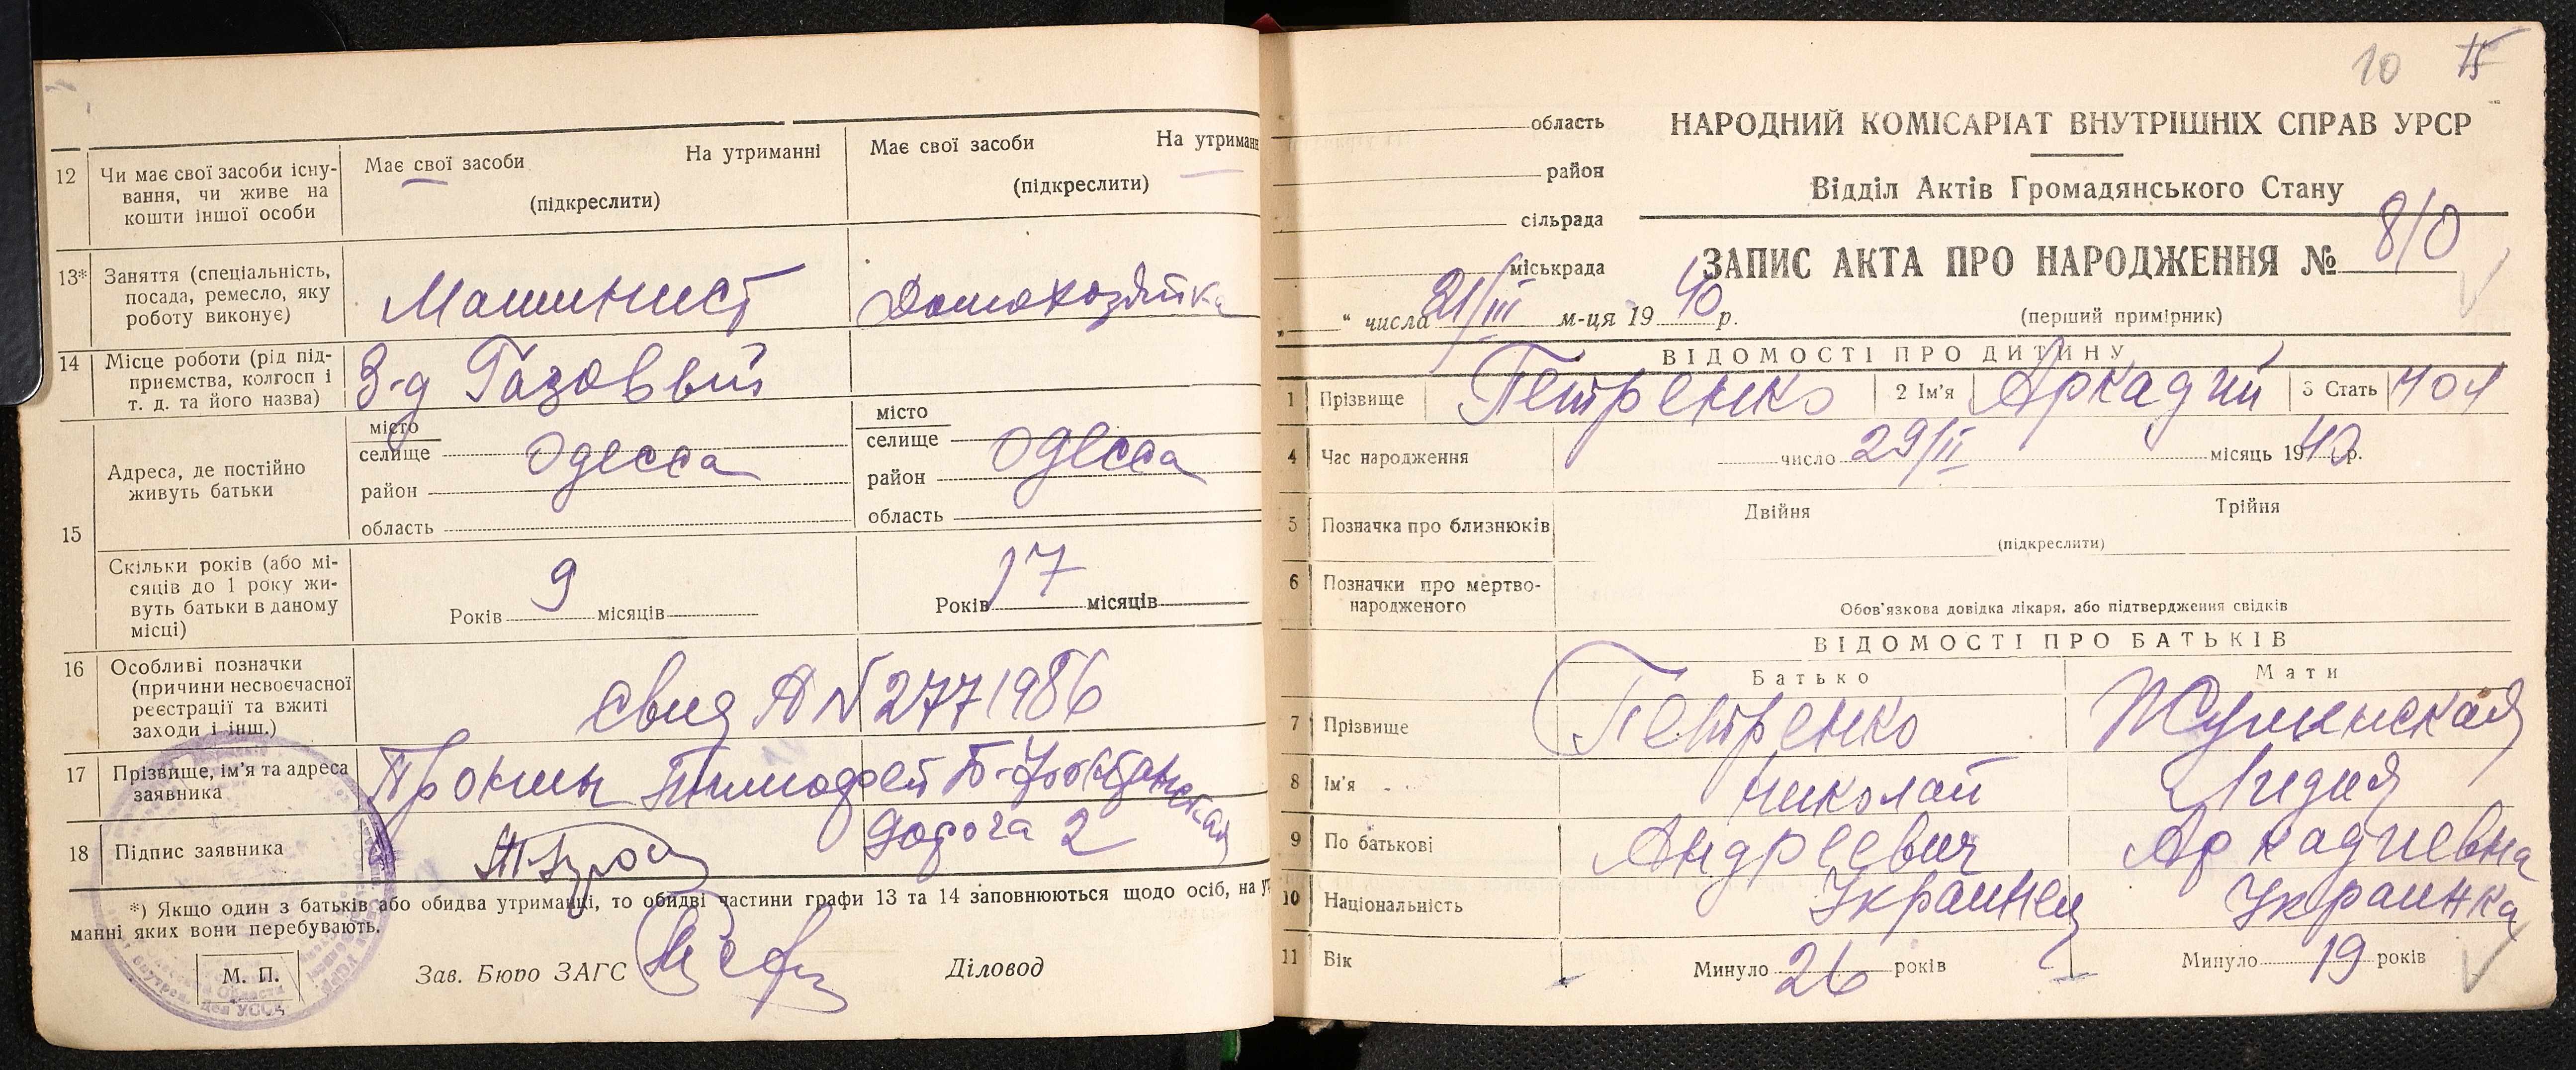 12 Чи має свої засоби існу-
вання, чи живе на
кошти іншої особи
Має свої засоби На утриманні
(підкреслити)
Має свої засоби На утриманн
(підкреслити)
13* Заняття (спеціальність,
посада, ремесло, яку
роботу виконує)
Машинист
Домохозяйка
14 Місце роботи (рід під-
приємства, колгосп і
т. д. та його назва)
З-д Газовый
15 Адреса, де постійно
живуть батьки
місто
селище Одесса
район
область
місто
селище
район Одесса
область
Скільки років (або мі-
сяців до 1 року жи-
вуть батьки в даному
місці)
Років 9 місяців
Років 17 місяців
16 Особливі позначки
(причини несвоєчасної
реєстрації та вжиті
заходи і інш.)
Свид А N 2771986
17 Прізвище, ім'я та адреса
заявника
Тимофей
дорога 2
18 Підпис заявника
*) Якщо один з батьків або обидва утриманці, то обидві частини графи 13 та 14 заповнюються щодо осіб, на ут
манні яких вони перебувають.
М. П. Зав. Бюро ЗАГС Діловод
10 15
область
район
сільрада
міськрада
„ “ числа 21/III м-ця 1940 р.
НАРОДНИЙ КОМІСАРІАТ ВНУТРІШНІХ СПРАВ УРСР
Відділ Актів Громадянського Стану
ЗАПИС АКТА ПРО НАРОДЖЕННЯ № 810
(перший примірник)
ВІДОМОСТІ ПРО ДИТИНУ
1 Прізвище Петренко 2 Ім'я Аркадий 3 Стать чол
4 Час народження число 29/II місяць 1940 р.
5 Позначка про близнюків Двійня Трійня
(підкреслити)
6 Позначки про мертво-
народженого
Обов'язкова довідка лікаря, або підтвердження свідків
ВІДОМОСТІ ПРО БАТЬКІВ
Батько Мати
7 Прізвище Петренко
8 Ім'я Николай Лидия
9 По батькові Андреевич Аркадиевна
10 Національність Украинец Украинка
11 Вік Минуло 26 років Минуло 19 років